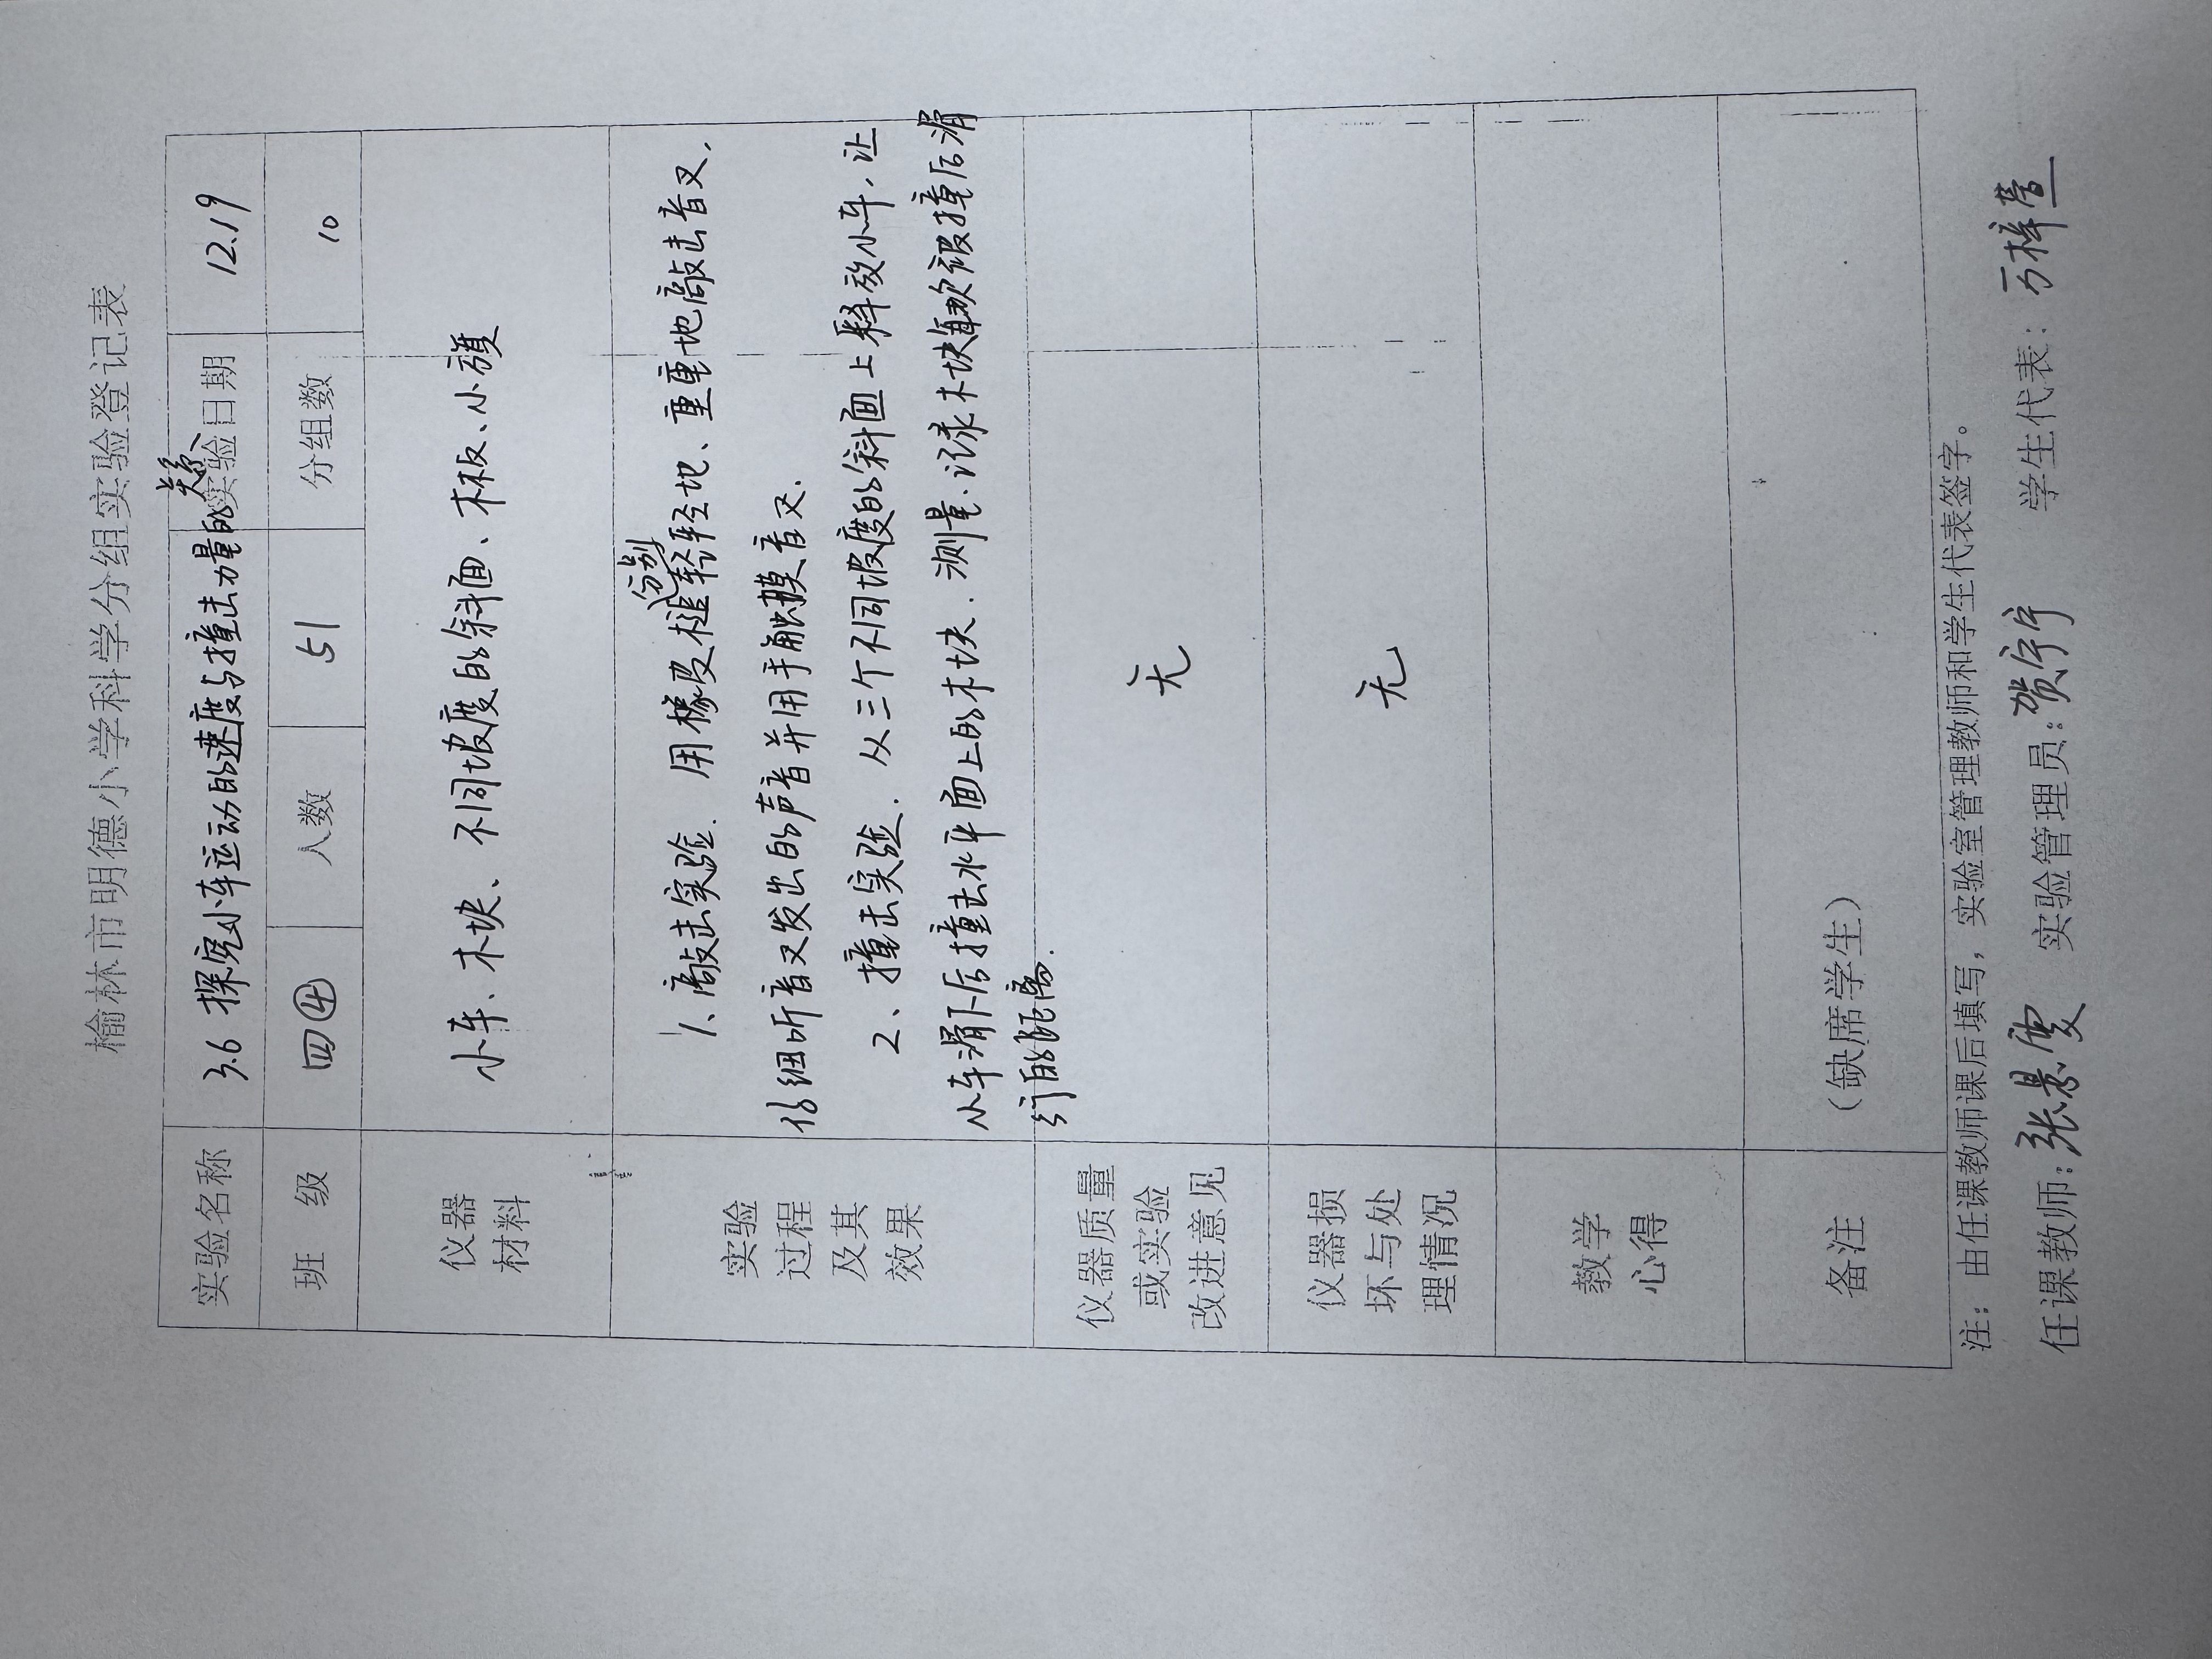 榆林市明德小学科学分组实验登记表
实验名称 3.6 探究小车运动的速度与撞击力量的关系 实验日期 12.19
班 级 四④ 人数 51 分组数 10
仪器材料 小车、木块、不同坡度的斜面、木板、小旗
实验过程及其效果
1、敲击实验. 用橡皮槌分别轻轻地、重重地敲击音叉,
仔细听音叉发出的声音并用手触摸音叉.
2、撞击实验. 从三个不同坡度的斜面上释放小车, 让
小车滑下后撞击水平面上的木块. 测量.记录木块每次被撞后滑
行的距离.
仪器质量或实验改进意见 无
仪器损坏与处理情况 无
教学心得
备注 (缺席学生)
注: 由任课教师课后填写, 实验室管理教师和学生代表签字。
任课教师: 张 雯 实验管理员: 贺宇宇 学生代表: 梓萱